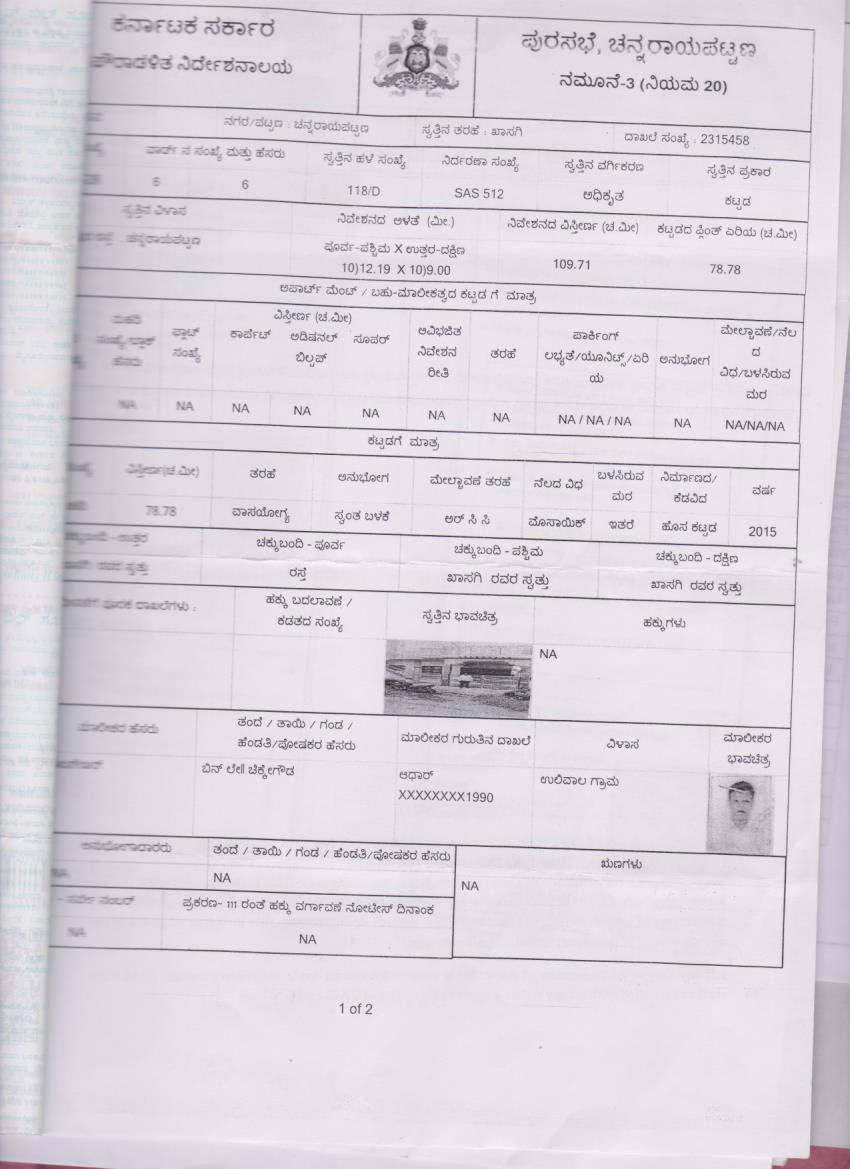 ಕರ್ನಾಟಕ ಸರ್ಕಾರ
ಪೌರಾಡಳಿತ ನಿರ್ದೇಶನಾಲಯ
ಪುರಸಭೆ, ಚನ್ನರಾಯಪಟ್ಟಣ
ನಮೂನೆ-3 (ನಿಯಮ 20)
ನಗರ/ಪಟ್ಟಣ : ಚನ್ನರಾಯಪಟ್ಟಣ ಸ್ವತ್ತಿನ ತರಹೆ : ಖಾಸಗಿ ದಾಖಲೆ ಸಂಖ್ಯೆ : 2315458
ವಾರ್ಡ್ ನ ಸಂಖ್ಯೆ ಮತ್ತು ಹೆಸರು ಸ್ವತ್ತಿನ ಹಳೆ ಸಂಖ್ಯೆ ನಿರ್ದರಣಾ ಸಂಖ್ಯೆ ಸ್ವತ್ತಿನ ವರ್ಗಿಕರಣ ಸ್ವತ್ತಿನ ಪ್ರಕಾರ
6 6 118/D SAS 512 ಅಧಿಕೃತ ಕಟ್ಟಡ
ಸ್ವತ್ತಿನ ವಿಳಾಸ ನಿವೇಶನದ ಅಳತೆ (ಮೀ.) ನಿವೇಶನದ ವಿಸ್ತೀರ್ಣ (ಚ.ಮೀ) ಕಟ್ಟಡದ ಪ್ಲಿಂತ್ ಏರಿಯ (ಚ.ಮೀ)
ಚನ್ನರಾಯಪಟ್ಟಣ ಪೂರ್ವ-ಪಶ್ಚಿಮ X ಉತ್ತರ-ದಕ್ಷಿಣ
10)12.19 X 10)9.00 109.71 78.78
ಅಪಾರ್ಟ್ ಮೆಂಟ್ / ಬಹು-ಮಾಲೀಕತ್ವದ ಕಟ್ಟಡ ಗೆ ಮಾತ್ರ
ವಿಸ್ತೀರ್ಣ (ಚ.ಮೀ)
ಹೆಸರು
ಫ್ಲಾಟ್ ಸಂಖ್ಯೆ
ಕಾರ್ಪೆಟ್
ಅಡಿಷನಲ್ ಬಿಲ್ಟಪ್
ಸೂಪರ್
ಅವಿಭಜಿತ
ನಿವೇಶನ
ರೀತಿ
ತರಹೆ
ಪಾರ್ಕಿಂಗ್
ಲಭ್ಯತೆ/ಯೂನಿಟ್ಸ್/ಏರಿ
ಯ
ಅನುಭೋಗ
ಮೇಲ್ಚಾವಣೆ/ನೆಲ
ದ
ವಿಧ/ಬಳಸಿರುವ
ಮರ
NA NA NA NA NA NA NA NA / NA / NA NA NA/NA/NA
ಕಟ್ಟಡಗೆ ಮಾತ್ರ
ವಿಸ್ತೀರ್ಣ(ಚ.ಮೀ) ತರಹೆ ಅನುಭೋಗ ಮೇಲ್ಚಾವಣೆ ತರಹೆ ನೆಲದ ವಿಧ ಬಳಸಿರುವ ಮರ ನಿರ್ಮಾಣದ/ ಕೆಡವಿದ ವರ್ಷ
78.78 ವಾಸಯೋಗ್ಯ ಸ್ವಂತ ಬಳಕೆ ಆರ್ ಸಿ ಸಿ ಮೊಸಾಯಿಕ್ ಇತರೆ ಹೊಸ ಕಟ್ಟಡ 2015
ಉತ್ತರ ಚಕ್ಕುಬಂದಿ - ಪೂರ್ವ ಚಕ್ಕುಬಂದಿ - ಪಶ್ಚಿಮ ಚಕ್ಕುಬಂದಿ - ದಕ್ಷಿಣ
ರವರ ಸ್ವತ್ತು ರಸ್ತೆ ಖಾಸಗಿ ರವರ ಸ್ವತ್ತು ಖಾಸಗಿ ರವರ ಸ್ವತ್ತು
ಪೂರಕ ದಾಖಲೆಗಳು : ಹಕ್ಕು ಬದಲಾವಣೆ / ಸ್ವತ್ತಿನ ಭಾವಚಿತ್ರ ಹಕ್ಕುಗಳು
ಕಡತದ ಸಂಖ್ಯೆ
NA
ಮಾಲೀಕರ ಹೆಸರು ತಂದೆ / ತಾಯಿ / ಗಂಡ / ಮಾಲೀಕರ ಗುರುತಿನ ದಾಖಲೆ ವಿಳಾಸ ಮಾಲೀಕರ
ಹೆಂಡತಿ/ಪೋಷಕರ ಹೆಸರು ಭಾವಚಿತ್ರ
ಬಿನ್ ಲೇ|| ಚಿಕ್ಕೇಗೌಡ ಆಧಾರ್ ಉಲಿವಾಲ ಗ್ರಾಮ
XXXXXXXX1990
ಅನುಭೋಗದಾರರು ತಂದೆ / ತಾಯಿ / ಗಂಡ / ಹೆಂಡತಿ/ಪೋಷಕರ ಹೆಸರು ಋಣಗಳು
NA NA NA
ಸರ್ವೆ ನಂಬರ್ ಪ್ರಕರಣ- 111 ರಂತೆ ಹಕ್ಕು ವರ್ಗಾವಣೆ ನೋಟೀಸ್ ದಿನಾಂಕ
NA NA
1 of 2